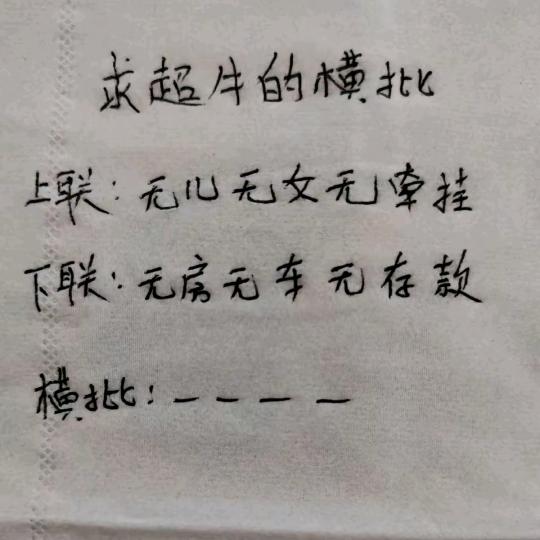 求超牛的横批
上联：无儿无女无牵挂
下联：无房无车无存款
横批：————